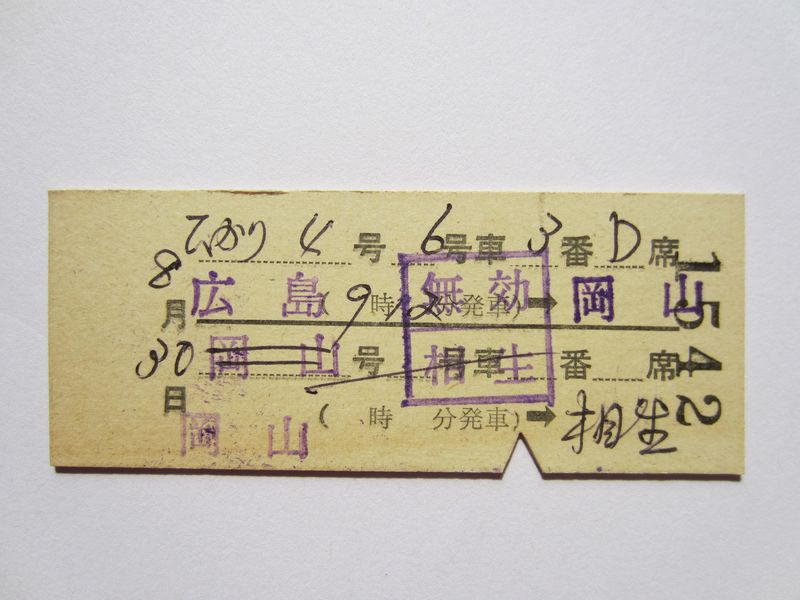 ひかり 4 号 6 号車 3 番 D 席
8 月 30 日
広島 ( 9 時 12 分発車) ➡ 岡山
岡山 号 号車 番 席
岡山 ( 時 分発車) ➡ 相生
無効
相生
1542